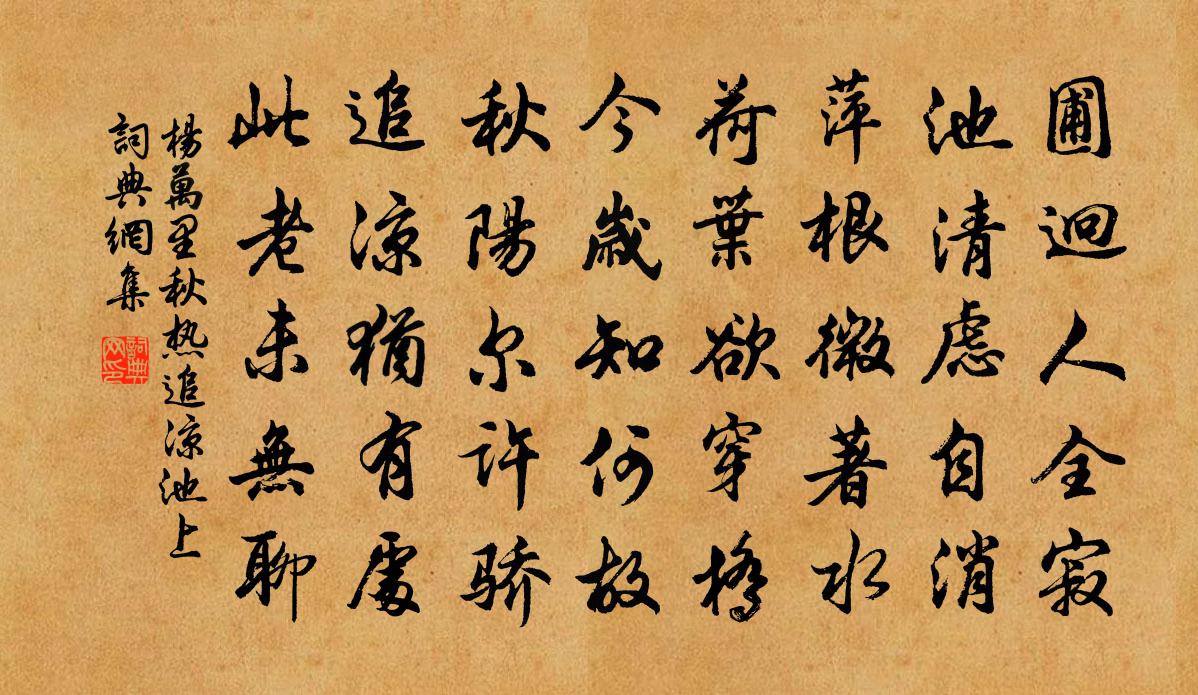 圃迥人全寂
池清慮自消
萍根微著水
荷葉欲穿橋
今歲知何故
秋陽尔許骄
追涼猶有處
此老未無聊
楊萬里秋热追凉池上
詞典網集
詞典网印